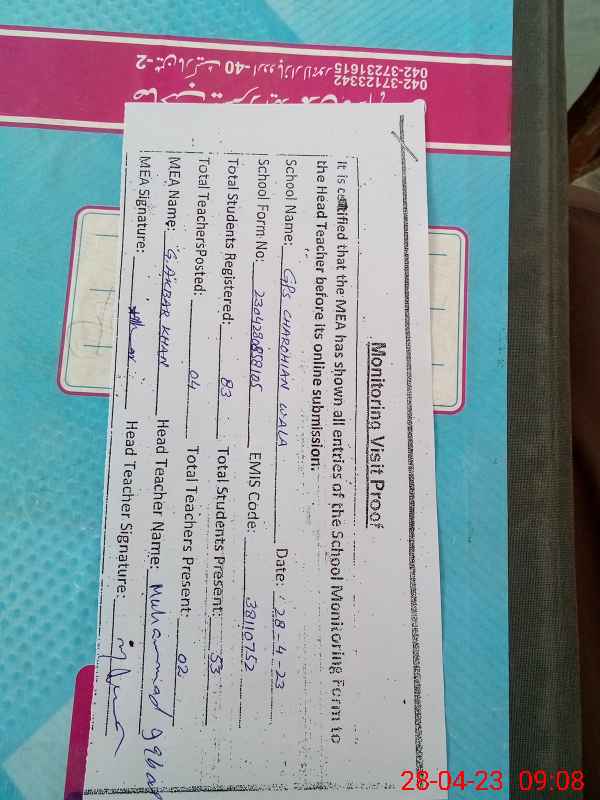 Monitoring Visit Proof
It is certified that the MEA has shown all entries of the School Monitoring Form to
the Head Teacher before its online submission.
School Name: GPS CHAROHIAN WALA Date: 28-4-23
School Form No: 2304280858105 EMIS Code: 38110752
Total Students Registered: 83 Total Students Present: 53
Total TeachersPosted: 04 Total Teachers Present: 02
MEA Name: G.AKBAR KHAN Head Teacher Name: Muhammad Iqbal
MEA Signature: Head Teacher Signature:
042-37123342
042-37231615
28-04-23 09:08